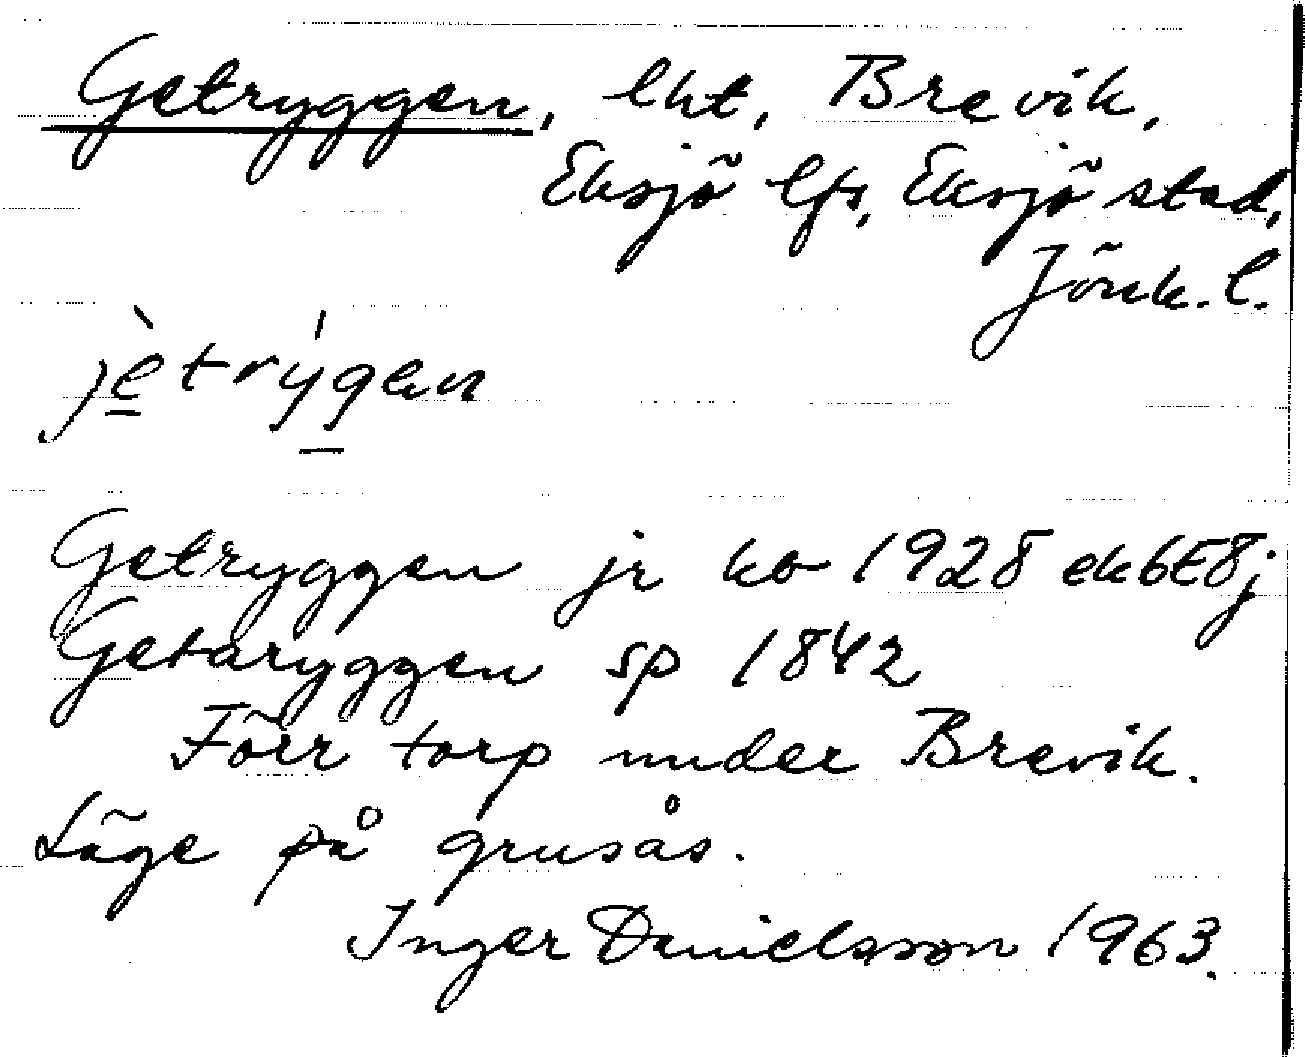 Getryggen, lht, Brevik,
Eksjö lfs, Eksjö stad,
Jönk. l.
jètrýgen
Getryggen jr kb 1928 ek6E8j
Getaryggen sp 1842
Förr torp under Brevik.
Läge på grusås.
Inger Danielsson 1963.